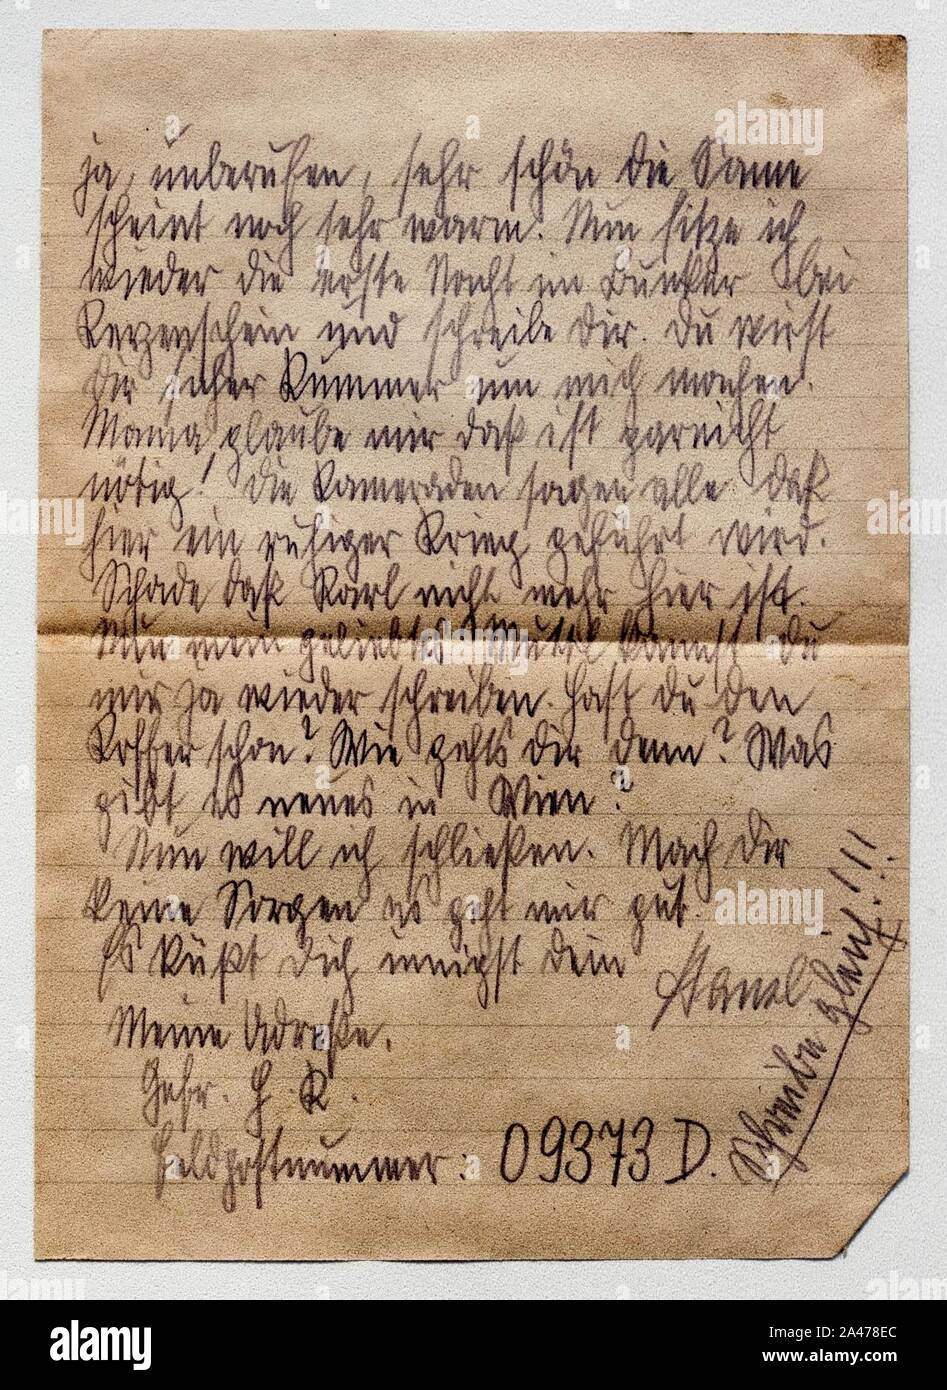 ja, unberufen, sehr schön die Sonne
scheint noch sehr warm. Nun sitze ich
wieder die erste Nacht im Bunker bei
Kerzenschein und schreibe Dir. Du wirst
Dir sicher Kummer um mich machen.
Mama, glaube mir daß ist garnicht
nötig! Die Kameraden sagen alle daß
hier ein ruhiger Krieg geführt wird.
Schade daß Karl nicht mehr hier ist.
Nun mein geliebtes Mutterl kannst Du
mir ja wieder schreiben. Hast Du den
Koffer schon? Wie gehts Dir denn? Was
gibt es neues in Wien?
Nun will ich schließen. Mach Dir
keine Sorgen es geht mir gut.
Es küßt Dich innigst Dein
Meine Adreße.
Gefr. H. K.
Feldpostnummer: 09373 D.
Schreibe gleich!!!
alamy
Image ID: 2A478EC
www.alamy.com